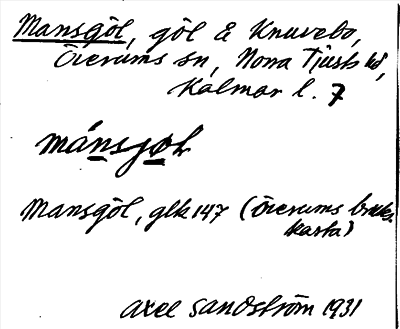 Mansgöl, göl å Knuvebo,
Överums sn, Norra Tjusts hd,
Kalmar l. 7
månsjøl
Mansgöl, glk 147 (Överums bruks
karta)
Axel Sandström 1931